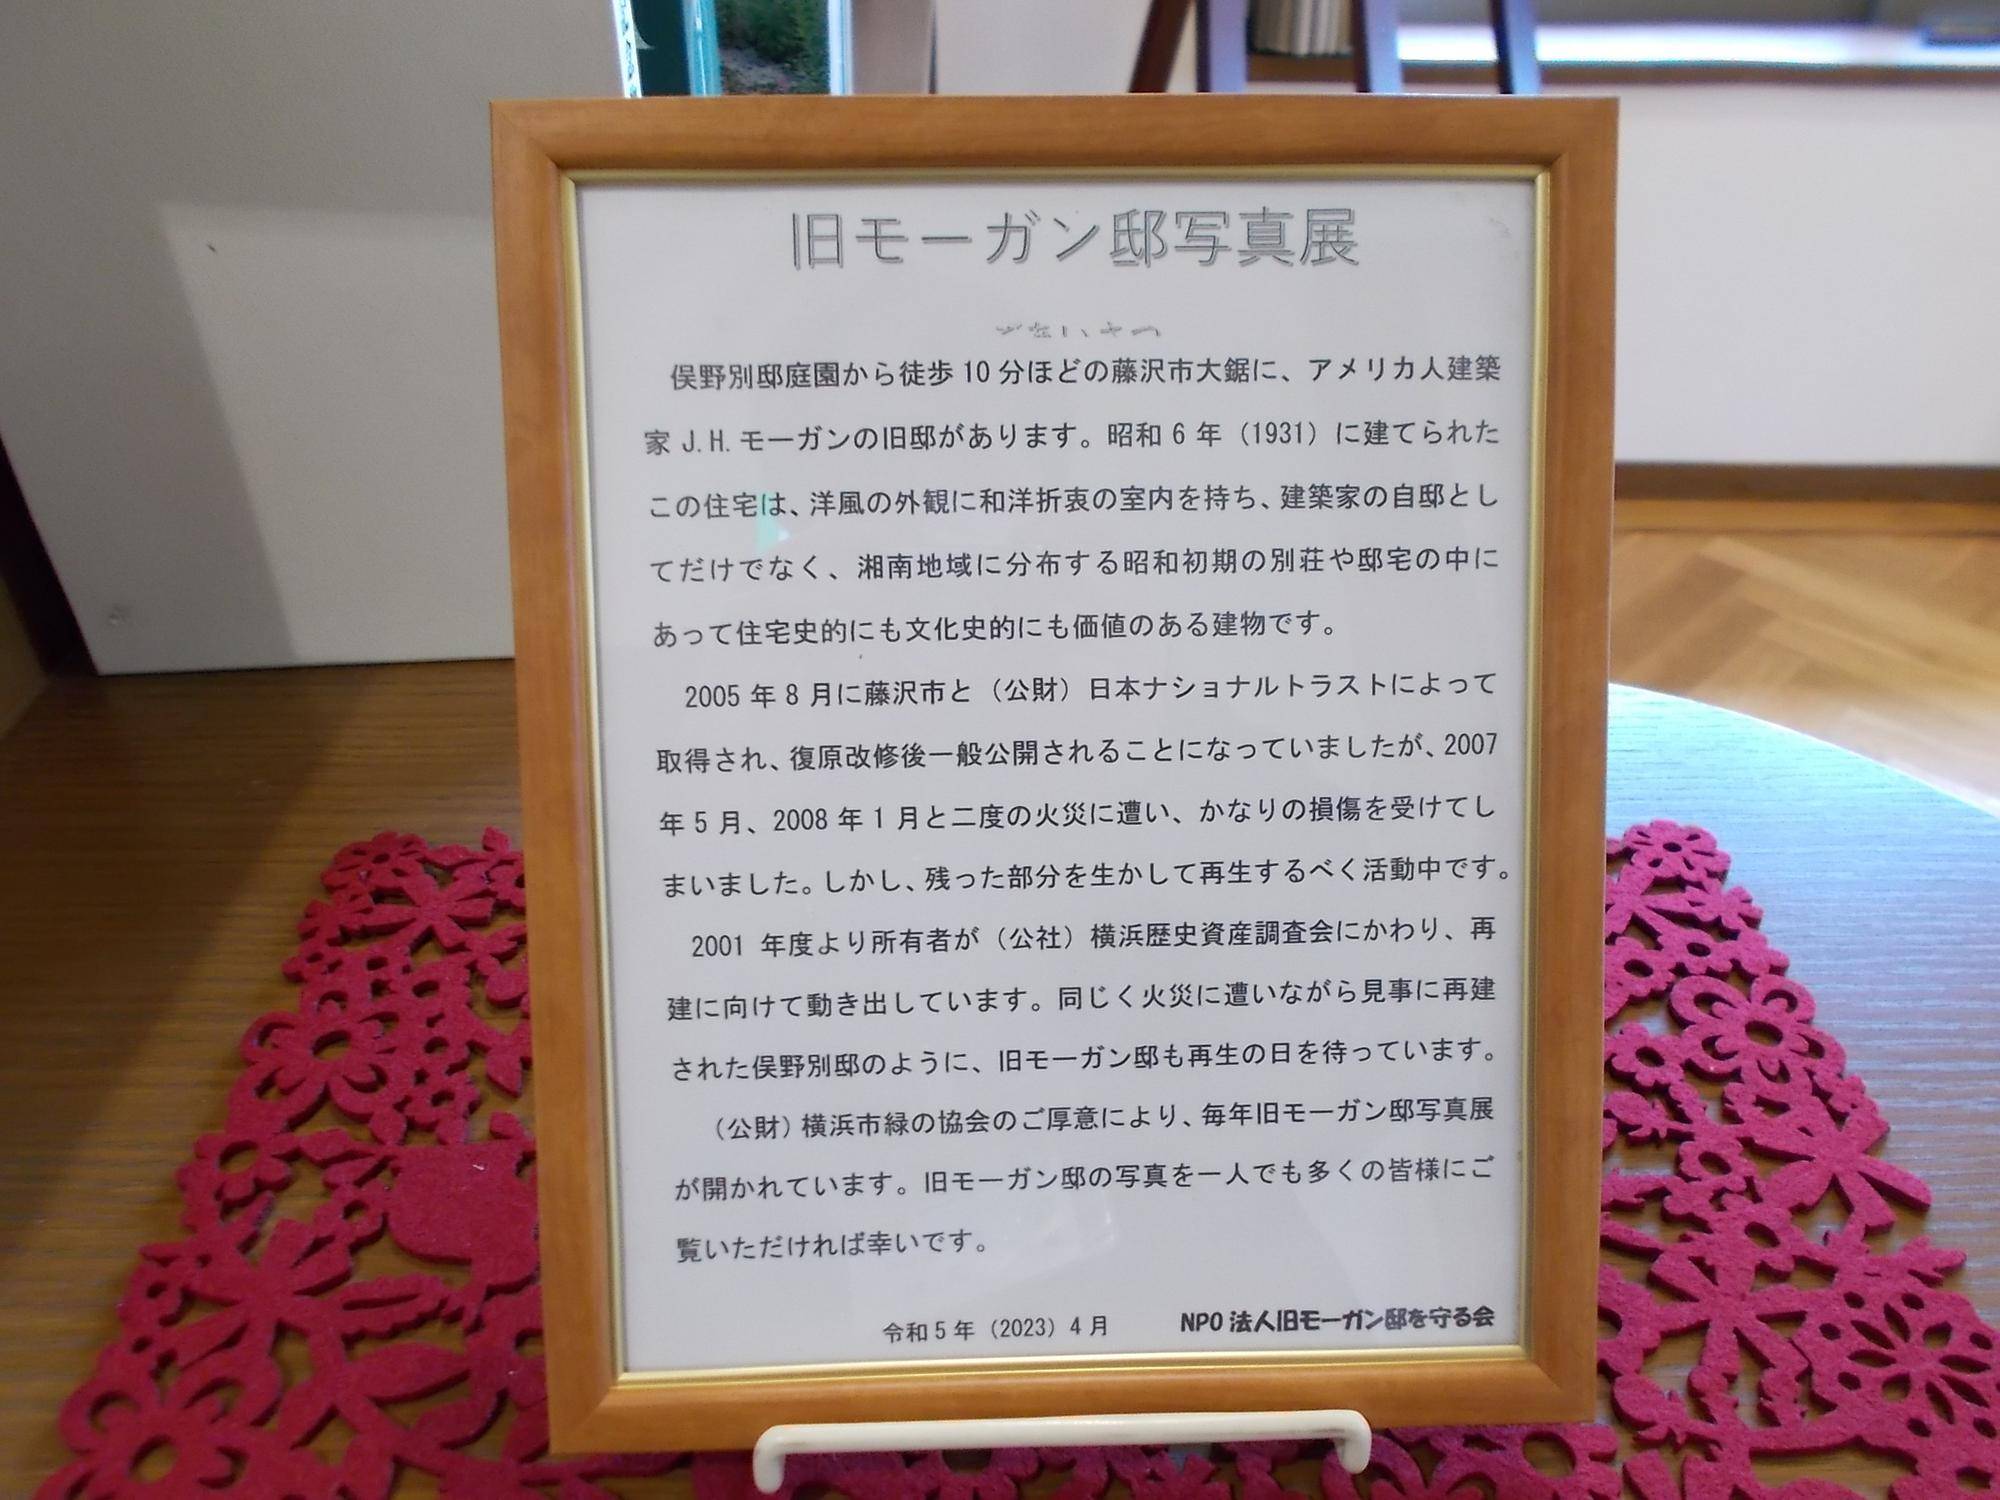 旧モーガン邸写真展
俣野別邸庭園から徒歩 10 分ほどの藤沢市大鋸に、アメリカ人建築
家 J.H. モーガンの旧邸があります。昭和 6 年（1931）に建てられた
この住宅は、洋風の外観に和洋折衷の室内を持ち、建築家の自邸とし
てだけでなく、湘南地域に分布する昭和初期の別荘や邸宅の中に
あって住宅史的にも文化史的にも価値のある建物です。
2005 年 8 月に藤沢市と（公財）日本ナショナルトラストによって
取得され、復原改修後一般公開されることになっていましたが、2007
年 5 月、2008 年 1 月と二度の火災に遭い、かなりの損傷を受けてし
まいました。しかし、残った部分を生かして再生するべく活動中です。
2001 年度より所有者が（公社）横浜歴史資産調査会にかわり、再
建に向けて動き出しています。同じく火災に遭いながら見事に再建
された俣野別邸のように、旧モーガン邸も再生の日を待っています。
（公財）横浜市緑の協会のご厚意により、毎年旧モーガン邸写真展
が開かれています。旧モーガン邸の写真を一人でも多くの皆様にご
覧いただければ幸いです。
令和 5 年（2023）4 月 NPO 法人旧モーガン邸を守る会